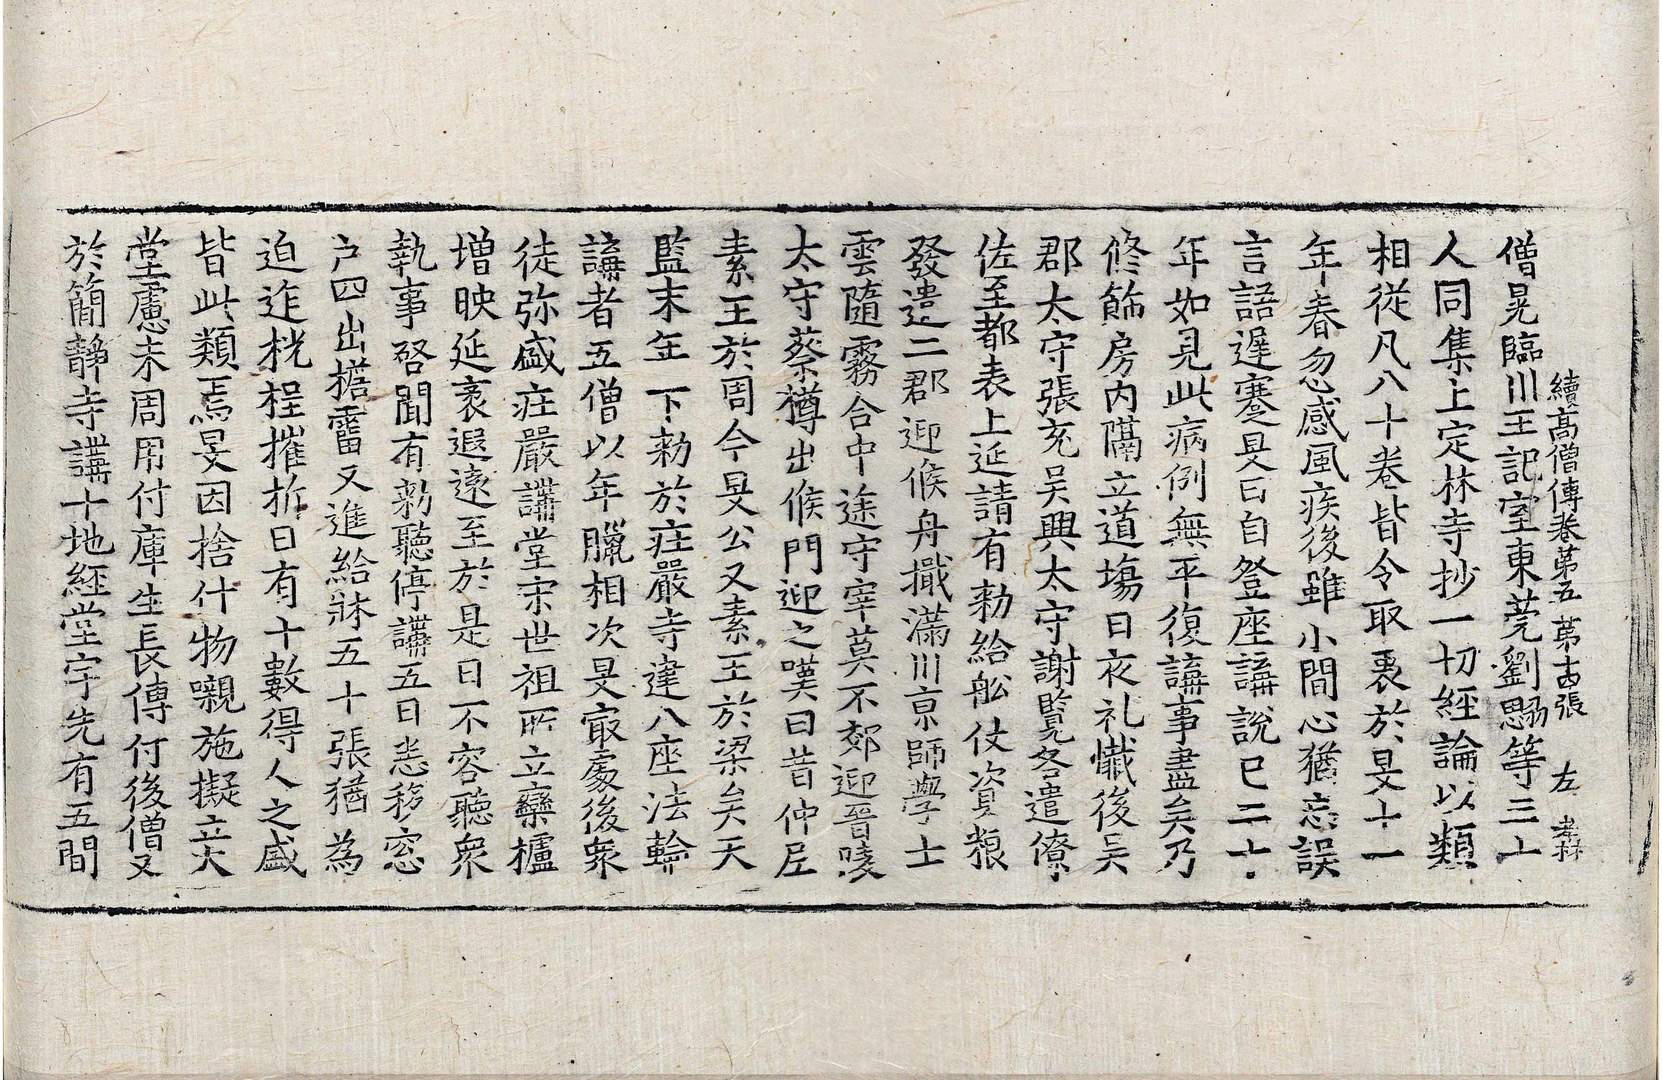 續高僧傳卷第五 第古張 左
僧晃臨川王記室東莞劉勰等三十
人同集上定林寺抄一切經論以類
相從凡八十卷皆令取衷於旻十一
年春忽感風疾後雖小間心猶忘誤
言語遲蹇旻曰自登座講說已二十
年如見此病例無平復講事盡矣乃
修飾房内隔立道場日夜礼懺後吳
郡太守張充吳興太守謝覽各遣僚
佐至都表上延請有勑給舩仗資粮
發遣二郡迎候舟檝滿川京師學士
雲隨霧合中途守宰莫不郊迎晉陵
太守蔡樽出候門迎之嘆曰昔仲尼
素王於周今旻公又素王於梁矣天
監末年下勑於莊嚴寺建八座法輪
講者五僧以年臘相次旻最處後衆
徒弥盛莊嚴講堂宋世祖所立欒櫨
増映延袤遐遠至於是日不容聽衆
執事啓聞有勑聽停講五日悉移窓
户四出檐霤又進給牀五十張猶爲
迫迮桄桯摧折日有十數得人之盛
皆此類焉旻因捨什物嚫施擬立大
堂慮未周用付庫生長傳付後僧又
於簡靜寺講十地經堂宇先有五間